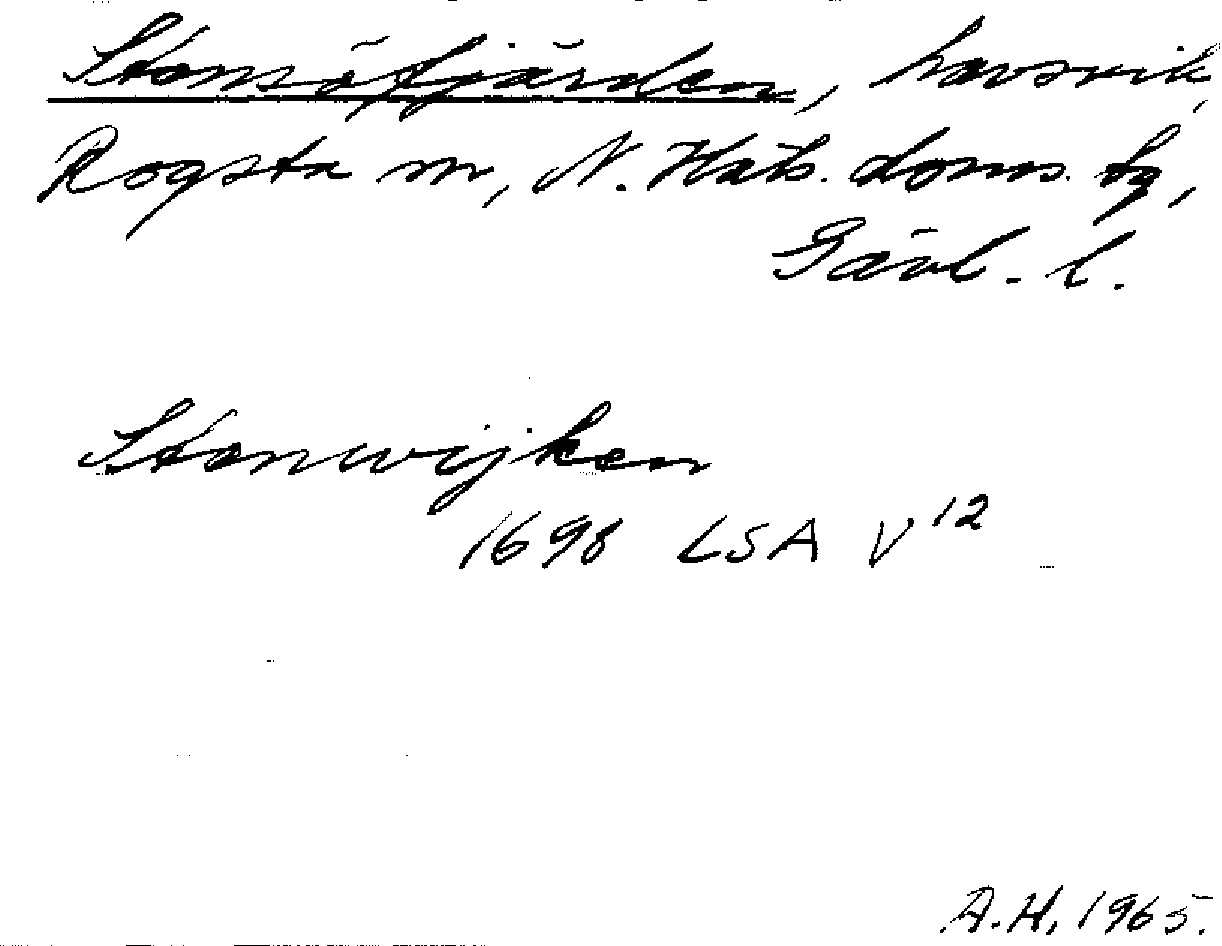 Stensöfjärden, havsvik,
Rogsta sn, N. Häls. doms. tg,
Gävl. l.
Stenwijken
1698 LSA V12
A.H. 1965.